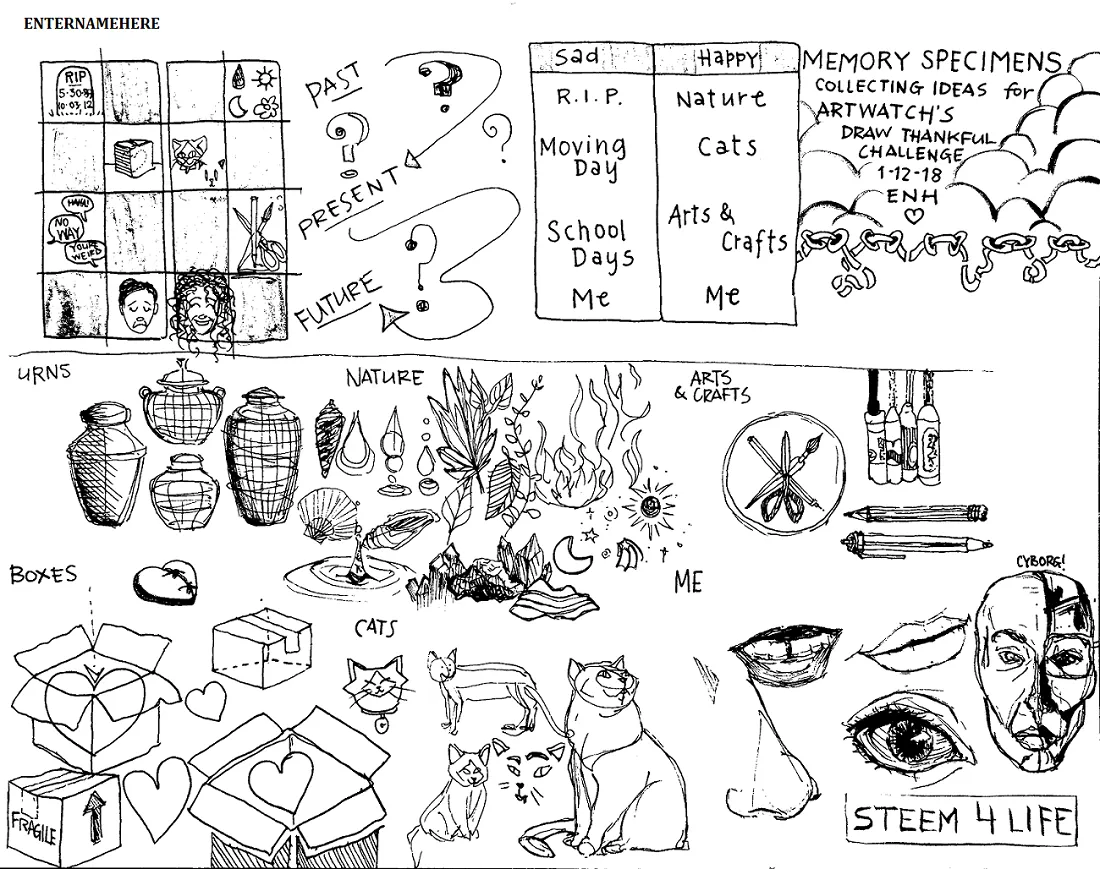 ENTERNAMEHERE
RIP
5·30·89
10·03·12
HAHA!
NO
WAY
YOU'RE
WEIRD
PAST
PRESENT
FUTURE
Sad
Happy
R.I.P.
Nature
Moving
Day
Cats
School
Days
Arts &
Crafts
Me
Me
MEMORY SPECIMENS
COLLECTING IDEAS for
ARTWATCH'S
DRAW THANKFUL
CHALLENGE
1-12-18
ENH
URNS
NATURE
ARTS
& CRAFTS
BOXES
CATS
FRAGILE
ME
CYBORG!
STEEM 4 LIFE